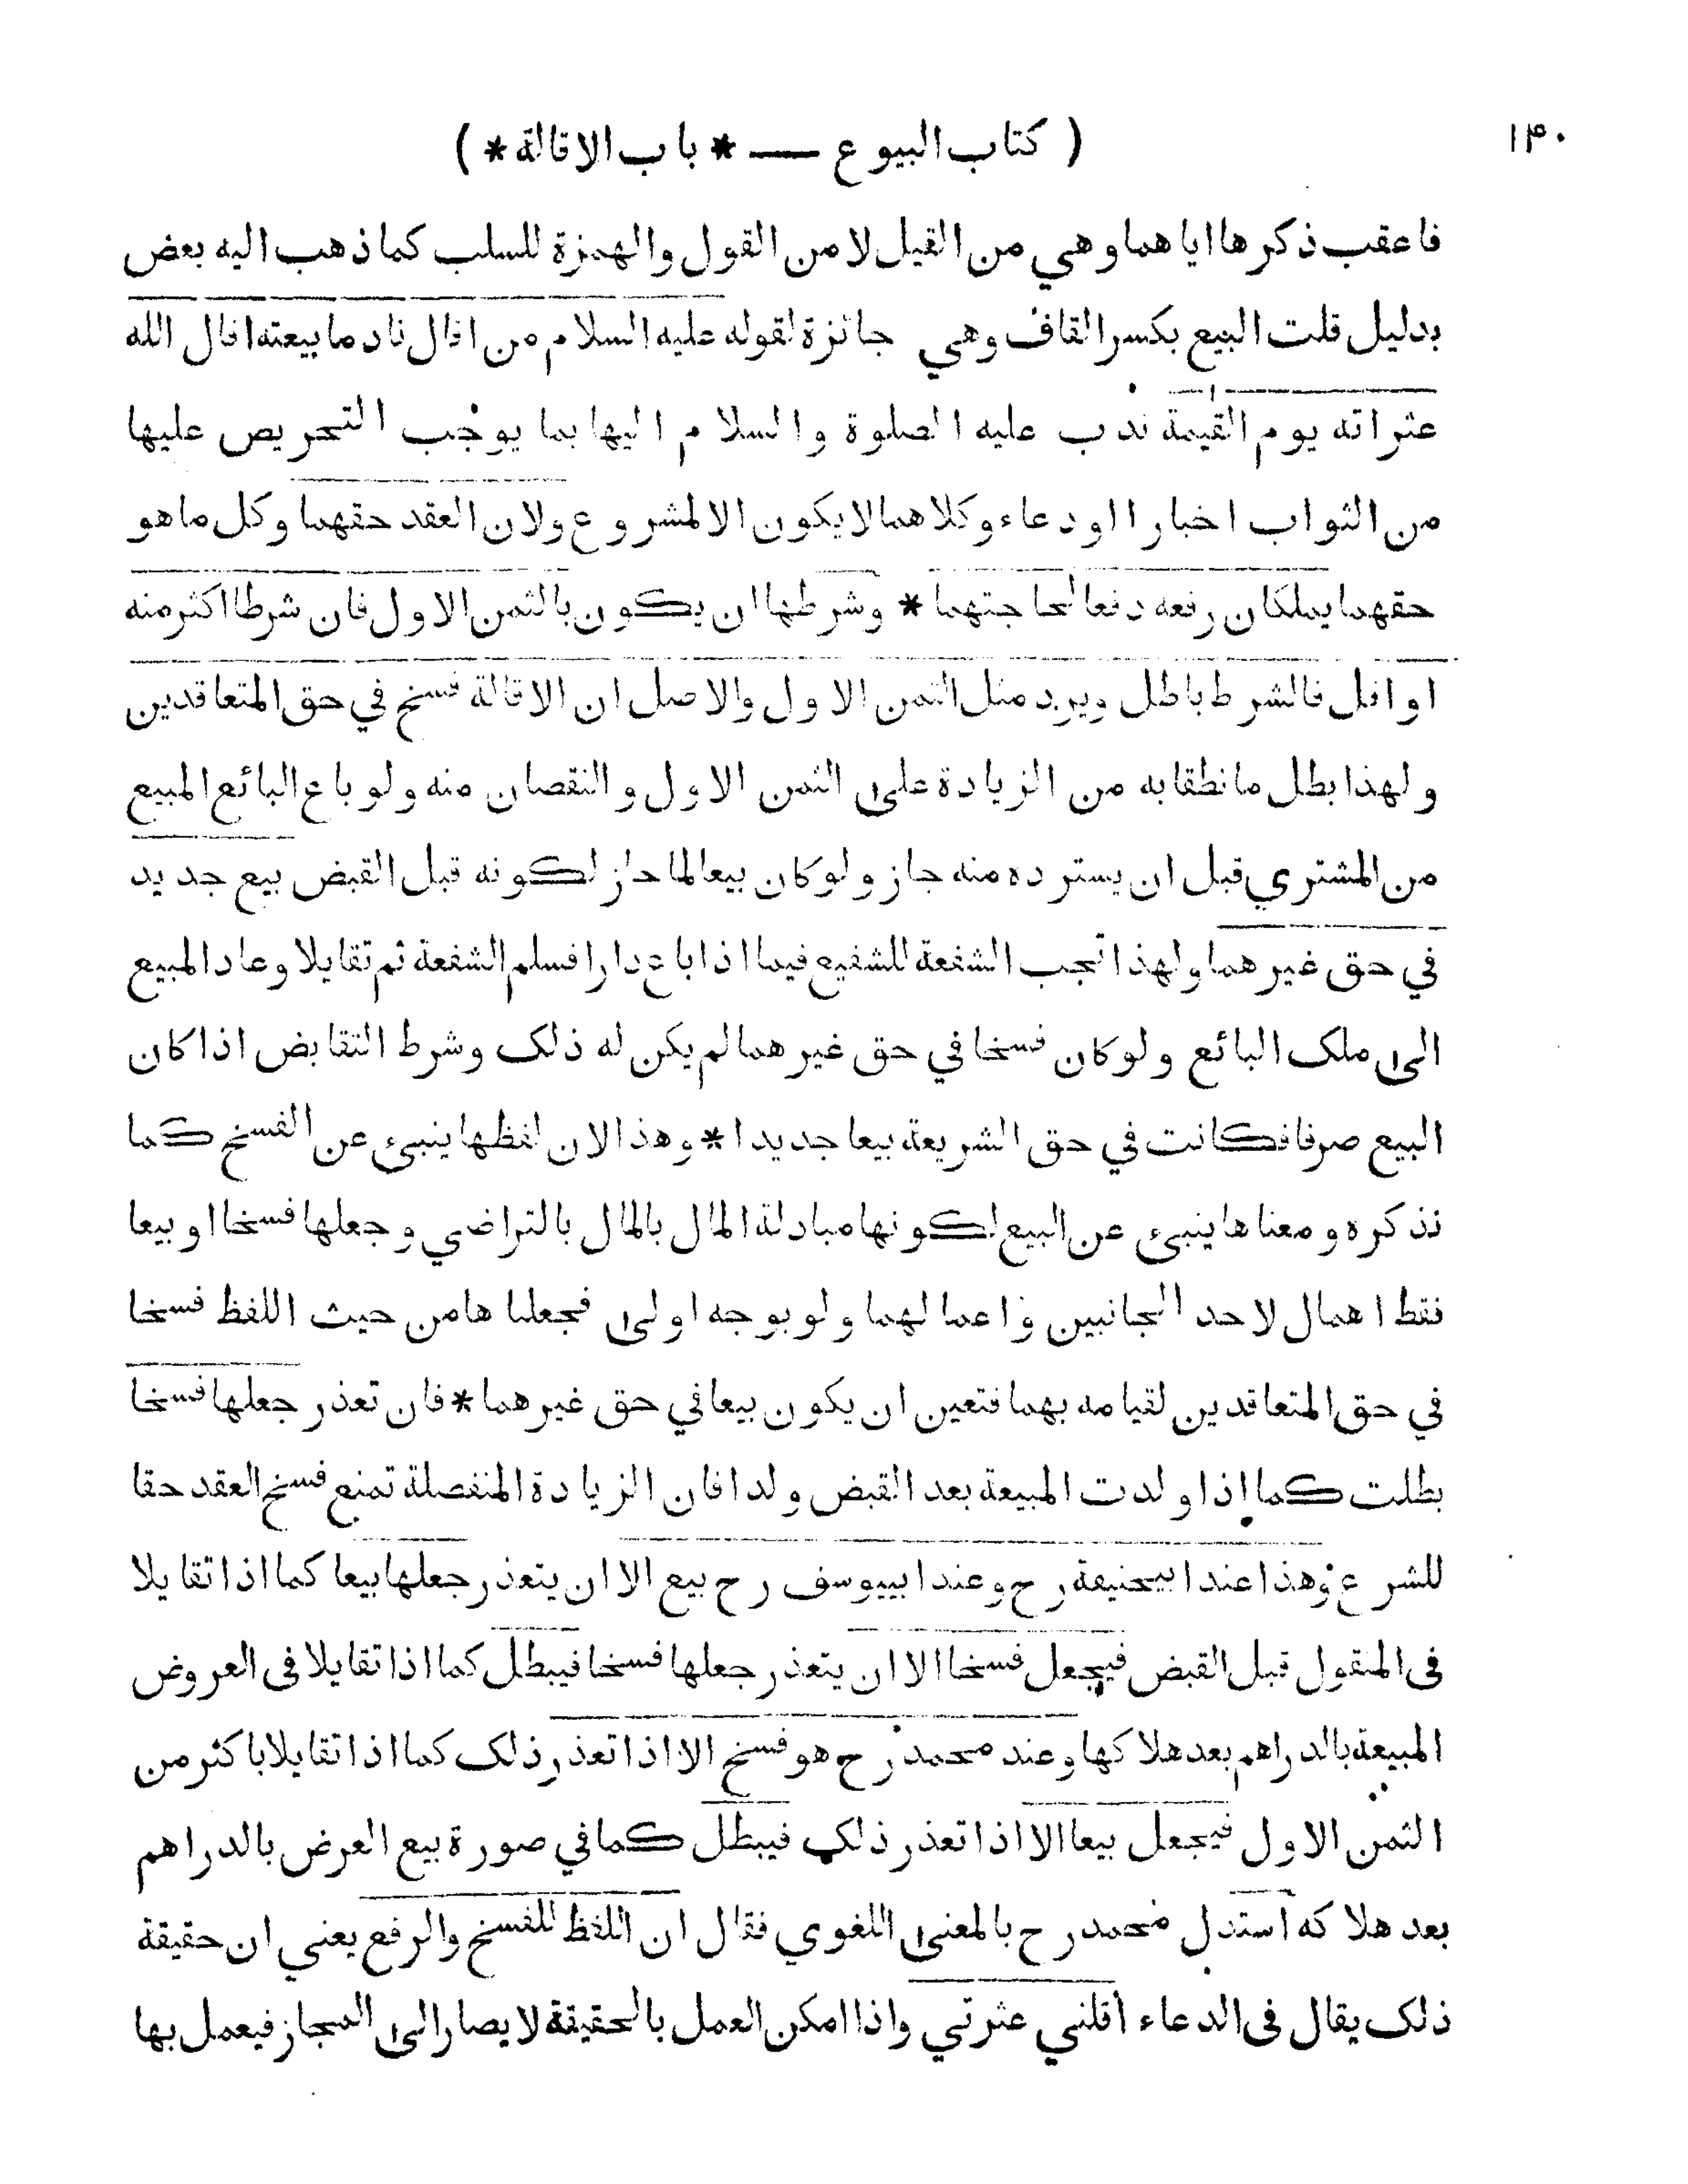 ١٣٠ ( كتاب البيوع — * باب الاقالة * )
فاعقب ذكرها اياهما وهي من القيل لا من القول والهمزة للسلب كما ذهب اليه بعض
بدليل قلت البيع بكسر القاف وهي جائزة لقوله عليه السلام من اقال نادما بيعته اقال الله
عثراته يوم القيمة ندب عليه الصلوة والسلام اليها بما يوجب التحريص عليها
من الثواب اخبارا او دعاء وكلاهما لا يكون الا لمشروع ولان العقد حقهما وكل ما هو
حقهما يملكان رفعه دفعا لحاجتهما * وشرطها ان يكون بالثمن الاول فان شرطا اكثر منه
او اقل فالشرط باطل ويرد مثل الثمن الاول والاصل ان الاقالة فسخ في حق المتعاقدين
ولهذا بطل ما نطقا به من الزيادة على الثمن الاول والنقصان منه ولو باع البائع المبيع
من المشتري قبل ان يسترده منه جاز ولو كان بيعا لما جاز لكونه قبل القبض بيع جديد
في حق غيرهما ولهذا تجب الشفعة للشفيع فيما اذا باع دارا فسلم الشفعة ثم تقايلا وعاد المبيع
الى ملك البائع ولو كان فسخا في حق غيرهما لم يكن له ذلك وشرط التقابض اذا كان
البيع صرفا فكانت في حق الشريعة بيعا جديدا * وهذا لان لفظها ينبئ عن الفسخ كما
نذكره ومعناها ينبئ عن البيع لكونها مبادلة المال بالمال بالتراضي وجعلها فسخا او بيعا
فقط اهمال لاحد الجانبين واعمالهما ولو بوجه اولى فجعلناها من حيث اللفظ فسخا
في حق المتعاقدين لقيامه بهما فتعين ان يكون بيعا في حق غيرهما * فان تعذر جعلها فسخا
بطلت كما اذا ولدت المبيعة بعد القبض ولدا فان الزيادة المنفصلة تمنع فسخ العقد حقا
للشرع وهذا عند ابيحنيفة رح وعند ابييوسف رح بيع الا ان يتعذر جعلها بيعا كما اذا تقايلا
فى المنقول قبل القبض فيجعل فسخا الا ان يتعذر جعلها فسخا فيبطل كما اذا تقايلا فى العروض
المبيعة بالدراهم بعد هلاكها وعند محمد رح هو فسخ الا اذا تعذر ذلك كما اذا تقايلا باكثر من
الثمن الاول فيجعل بيعا الا اذا تعذر ذلك فيبطل كما في صورة بيع العرض بالدراهم
بعد هلاكه استدل محمد رح بالمعنى اللغوي فقال ان اللفظ للفسخ والرفع يعني ان حقيقة
ذلك يقال فى الدعاء أقلني عثرتي واذا امكن العمل بالحقيقة لا يصار الى المجاز فيعمل بها